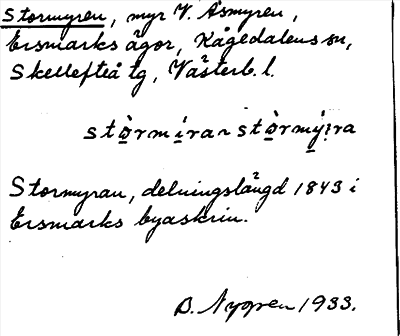 Stormyren, myr V. Åsmyren,
Ersmarks ägor, Kågedalens sn,
Skellefteå tg, Västerb. l.
stòrmíran stòrmýra
Stormyran, delningslängd 1843 i
Ersmarks byaskrin.
B. Nygren 1933.